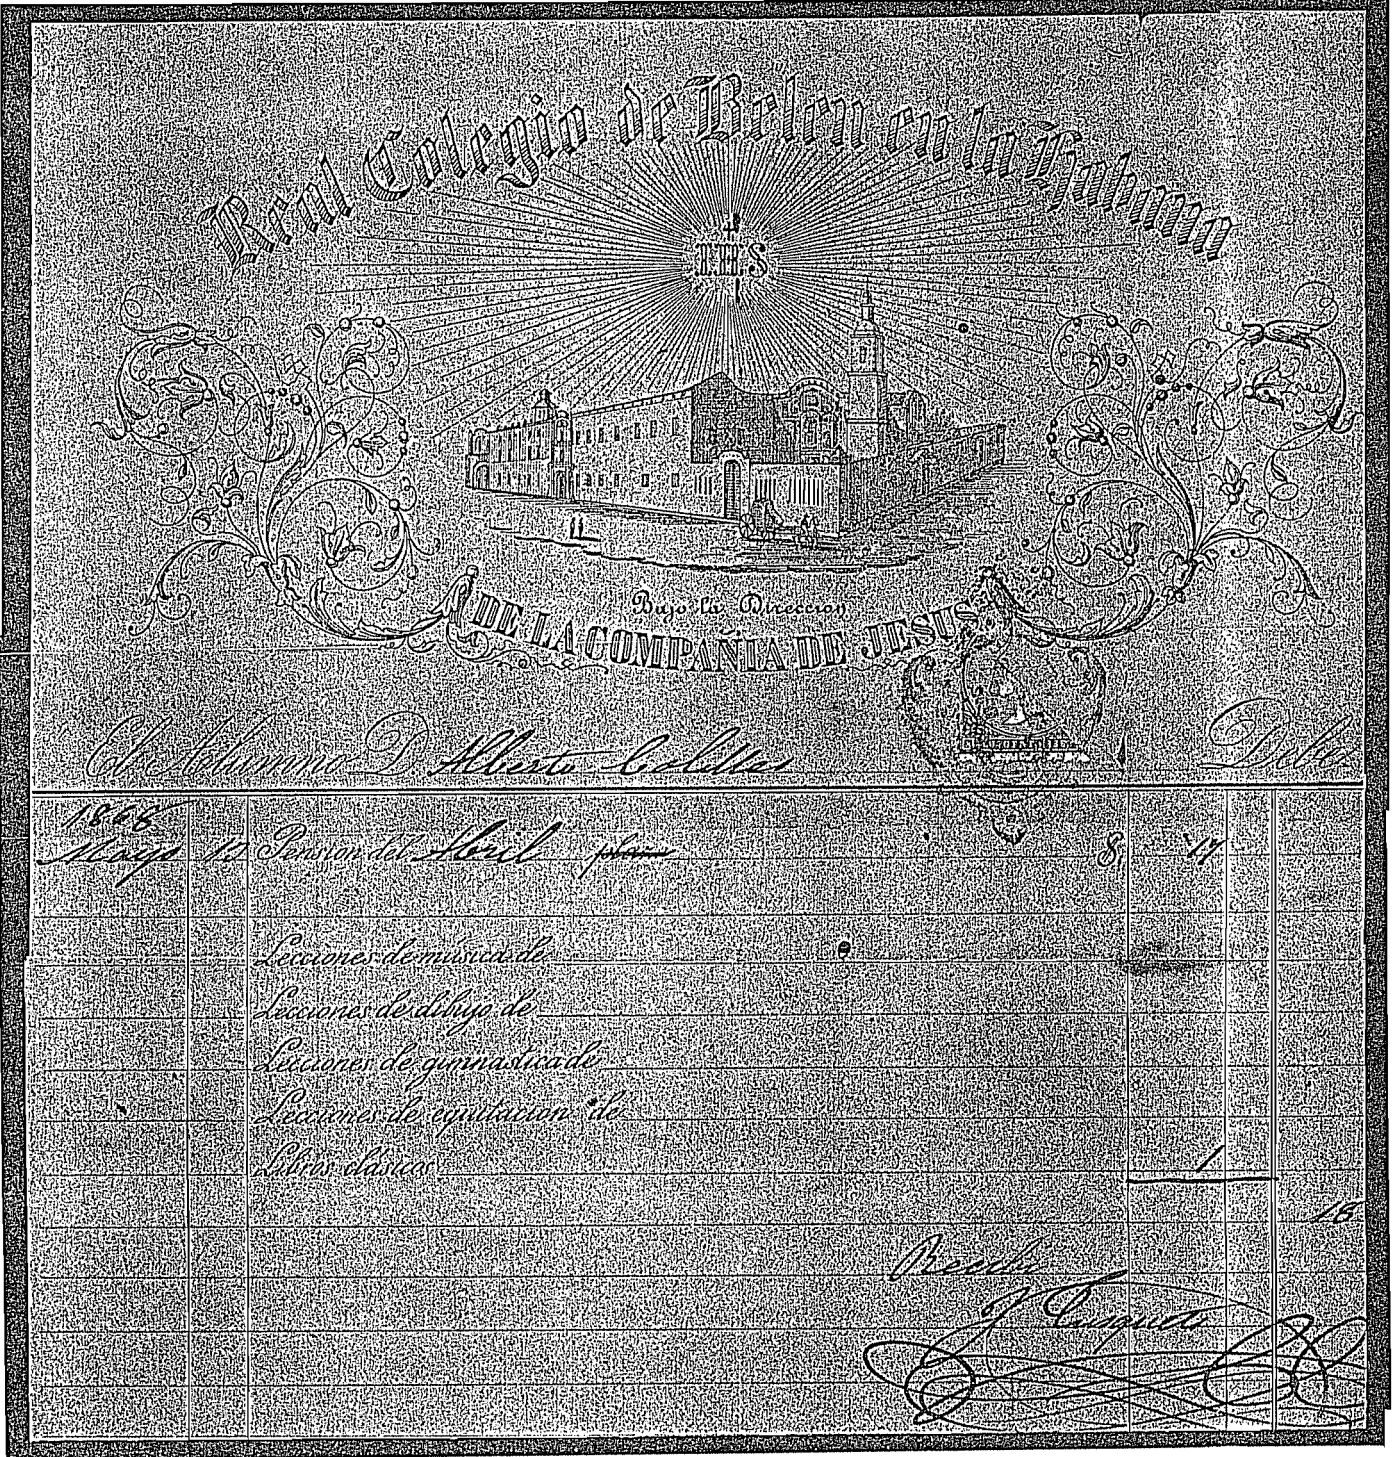 Real Colegio de Belen en la Habana
IHS
Bajo la Direccion
DE LA COMPAÑIA DE JESUS
El Alumno D. Alberto Debe
1868
Mayo 12 Pension del Abril $ 17
Lecciones de musica de
Lecciones de dibujo de
Lecciones de gimnastica de
Lecciones de equitacion de
Libros clásicos 1
18
Recibi
J